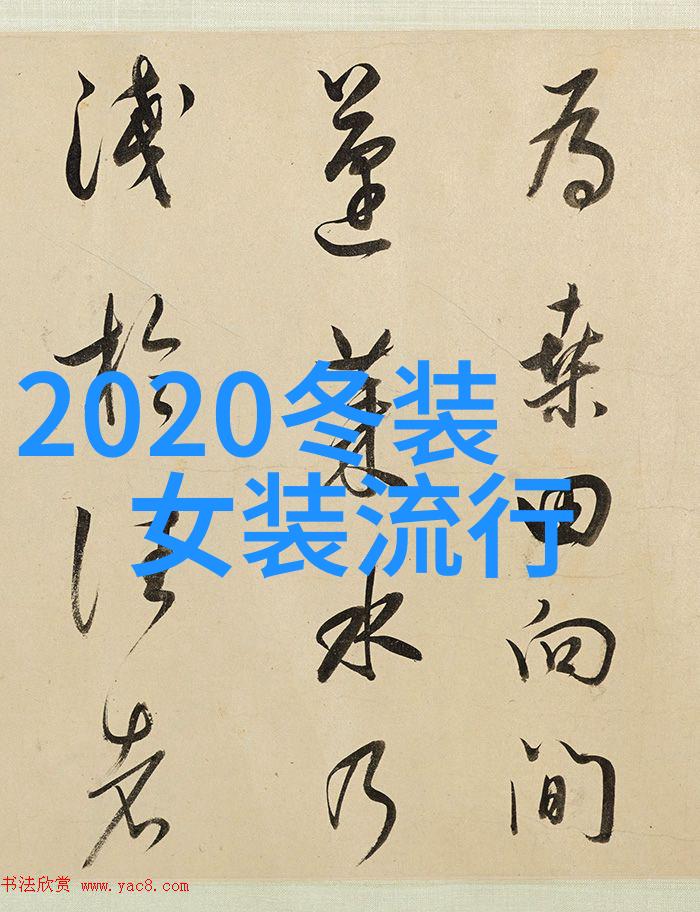 為桑田向間
蓬萊水乃
淺於往者
2020冬装
女装流行
书法欣赏 www.yac8.com